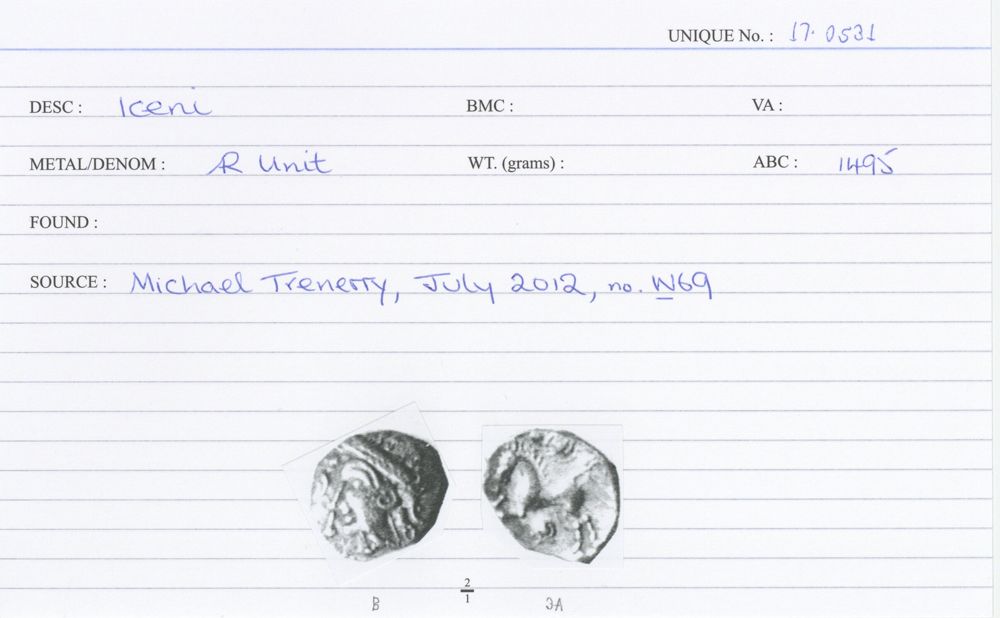 UNIQUE No. : 17.0531
DESC : Iceni BMC : VA :
METAL/DENOM : AR Unit WT. (grams) : ABC : 1495
FOUND :
SOURCE : Michael Trenerry, July 2012, no. W69
2
1
B ƎA